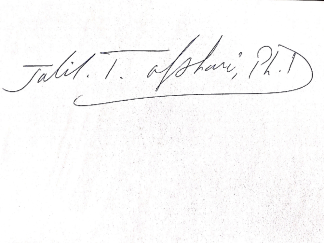 Jalil. T. afshari, Ph.D